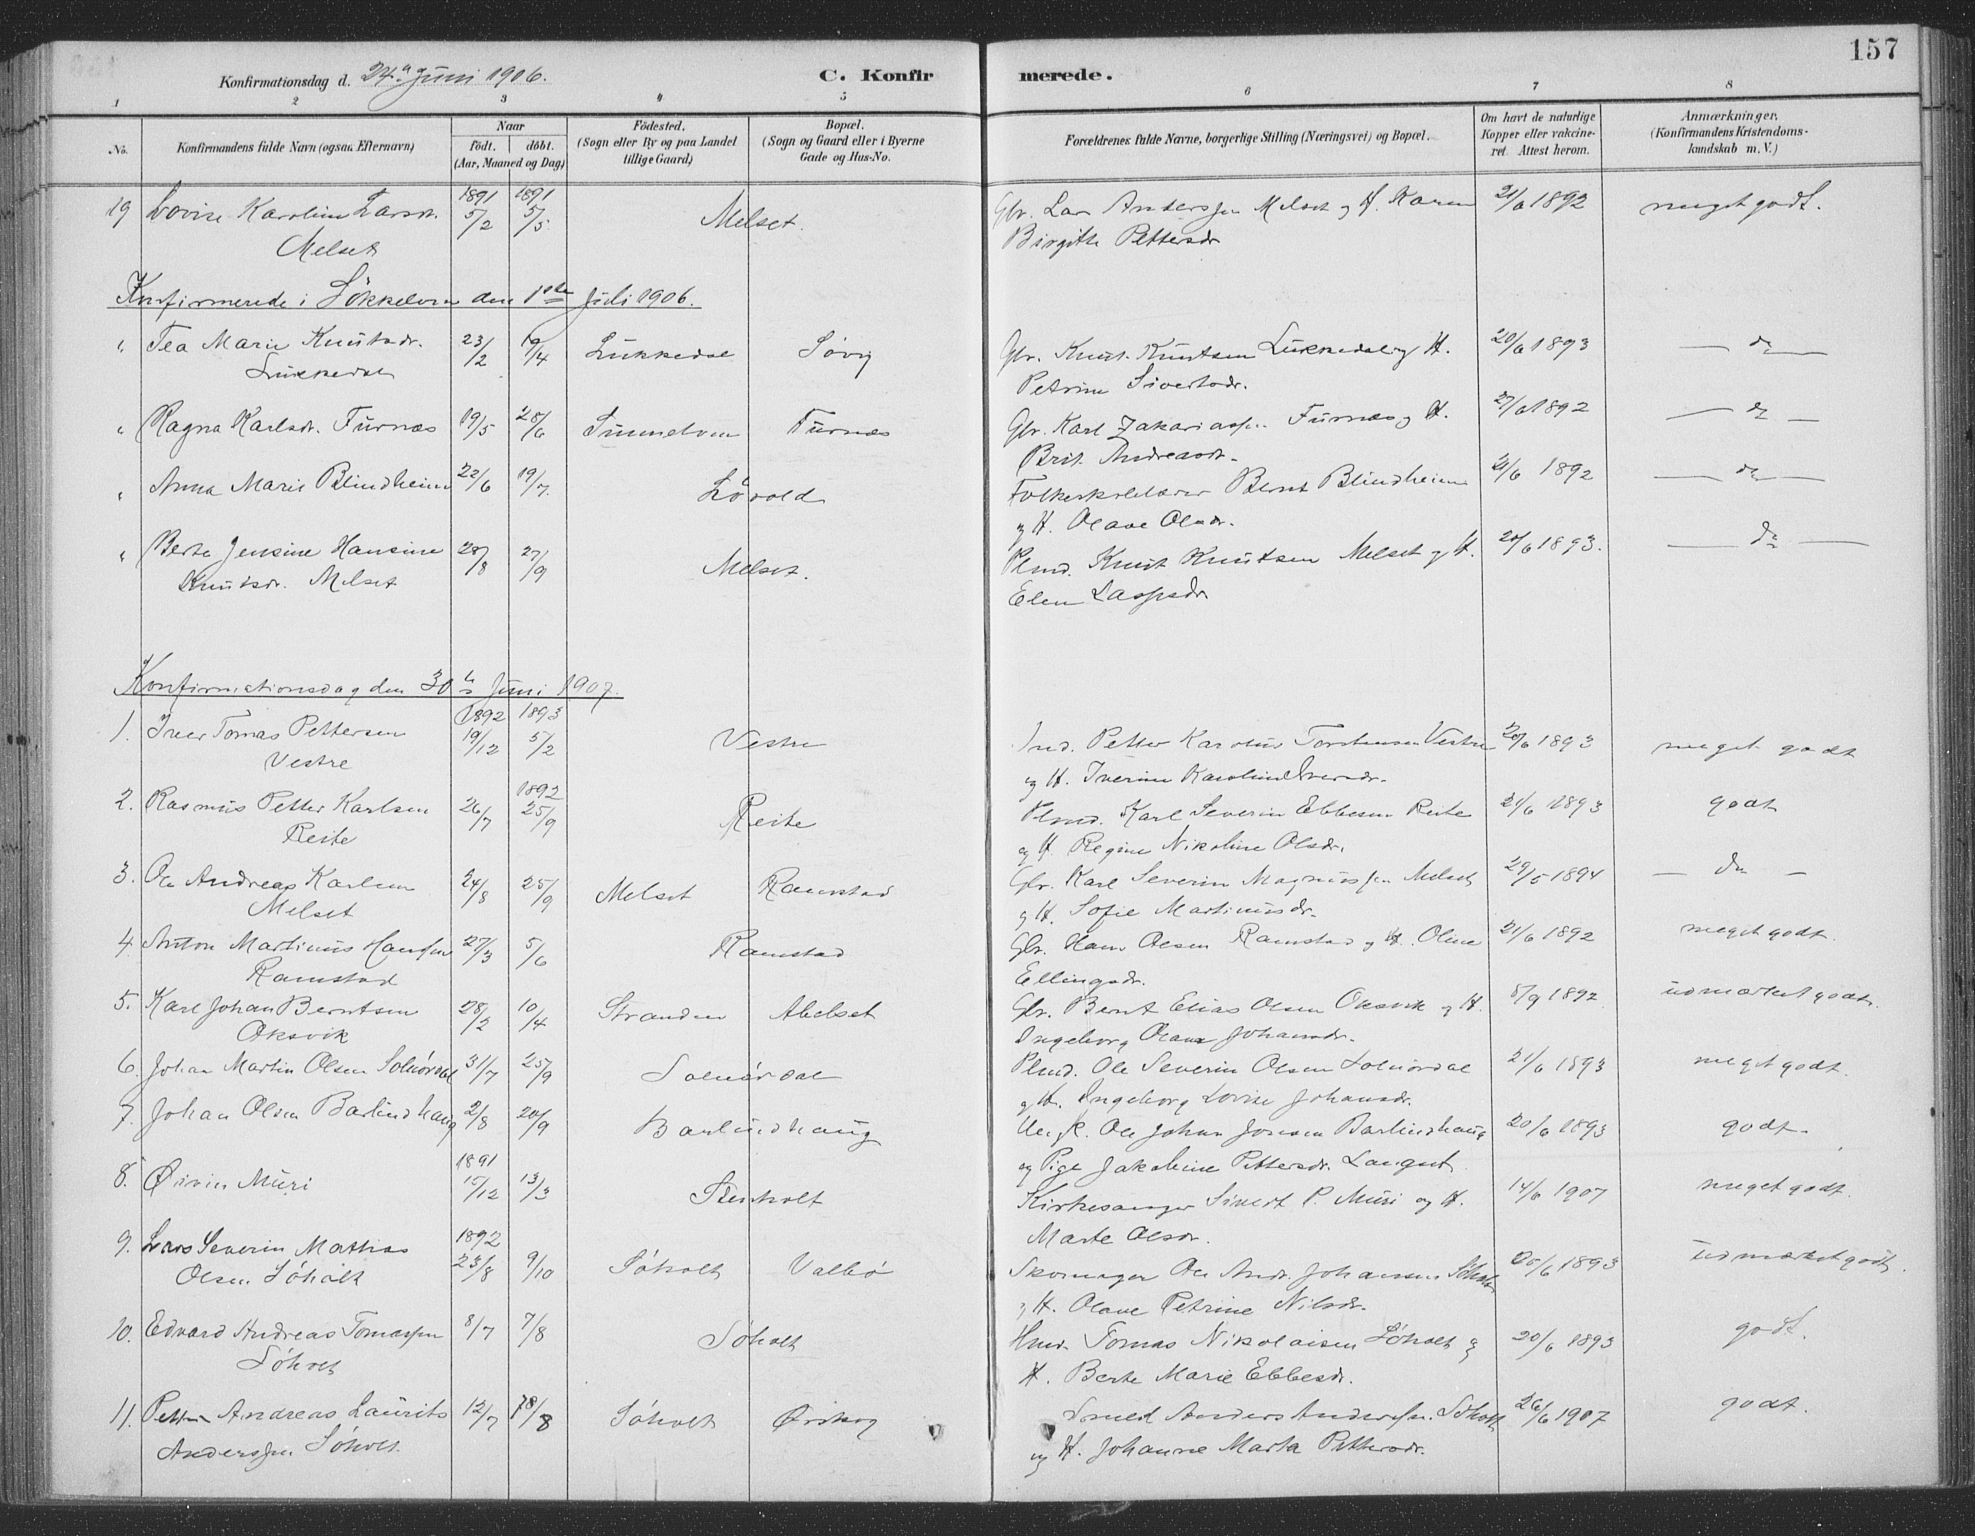 157
Konfirmationsdag d. 24de Juni 1906.
C. Konfirmerede.
1 2 3 4 5 6 7 8
No. Konfirmandens fulde Navn (ogsaa Efternavn) Naar født. døbt. (Aar, Maaned og Dag) Fødested. (Sogn eller By og paa Landet tillige Gaard) Bopæl. (Sogn og Gaard eller i Byerne Gade og Hus-No. Forældrenes fulde Navne, borgerlige Stilling (Næringsvei) og Bopæl. Om havt de naturlige Kopper eller vakcineret. Attest herom. Anmærkninger. (Konfirmandens Kristendomskundskab m. V.)
1891 1891
19 Lovise Karoline Larsdr. 5/2 5/5 Melset. Gbr. Lars Anderssen Melset og H. Karen 21/6 1892 meget godt.
Melset Birgitte Pettersdr
Konfirmerede i Søkkelven den 1ste Juli 1906.
" Tea Marie Knutsdr. 23/2 19/4 Lukkedal Søvig Gbr. Knut Knutsen Lukkedal og H. 20/6 1893 — do —
Lukkedal Petrine Sivertsdr.
" Ragna Karlsdr. Furnæs 19/5 26/6 Sunnelven Furnæs Gbr. Karl Zakariassen Furnæs og H. 27/6 1892 — do —
Brit. Andreasdr.
" Anna Marie Blindheim 22/6 19/7 Løvold Folkeskolelærer Bernt Blindheim 21/6 1892 — do —
og H. Olave Olsdr.
" Berte Jensine Hansine 28/8 27/9 Melset. Plmd. Knut Knutsen Melset og H. 20/6 1893. — do —
Knutsdr. Melset Elen Lassesdr
Konfirmationsdag den 30te Juni 1907.
1892 1893
1. Iver Tomas Pettersen 19/12 5/2 Vestre Ind. Petter Karolus Torstensen Vestre 20/6 1893 meget godt
Vestre og H. Iverine Karoline Iversdr.
1892
2. Rasmus Petter Karlsen 26/7 25/9 Reite Plmd. Karl Severin Ebbesen Reite 21/6 1893 godt
Reite og H. Regine Nikoline Olsdr.
3. Ole Andreas Karlsen 24/8 25/9 Melset Ramstad Gbr. Karl Severin Magnussen Melset 29/5 1894 — do —
Melset og H. Sofie Martinusdr.
4. Anton Martinus Hanssen 27/3 5/6 Ramstad Gbr. Hans Olsen Ramstad og H. Oline 21/6 1892 meget godt.
Ramstad Ellingsdr.
5. Karl Johan Berntsen 28/2 10/4 Stranden Abelset Gbr. Bernt Elias Olsen Oksvik og H. 8/9 1892 udmærket godt.
Oksvik Ingeborg Olava Johansdr.
6. Johan Martin Olsen Solnørdal 31/7 25/9 Solnørdal Plmd. Ole Severin Olsen Solnørdal 21/6 1893 meget godt.
og H. Ingeborg Lovise Johansdr.
7. Johan Olsen Barlindhaug 2/8 20/9 Barlindhaug Ungk. Ole Johan Jonsen Barlindhaug 20/6 1893 godt.
og Pige Jakobine Pettersdr. Langset
1891
8. Øivin Muri 15/12 13/3 Stenholt Kirkesanger Sivert P. Muri og H. 14/6 1907 meget godt.
Marte Olsdr.
1892
9. Lars Severin Mathias 23/8 9/10 Søholt Valbø Skomager Ole Andr. Johansen Søholt 20/6 1893 udmærket godt.
Olsen Søholt og H. Olave Petrine Nilsdr.
10. Edvard Andreas Tomassen 8/7 7/8 Søholt Hmd. Tomas Nikolaisen Søholt og 20/6 1893 godt.
Søholt H. Berte Marie Ebbesdr.
11. Petter Andreas Laurits 12/7 18/8 Søholt Ørskog Smed Anders Anderssen Søholt 26/6 1907 godt.
Anderssen Søholt. og H. Johanne Marta Pettersdr.